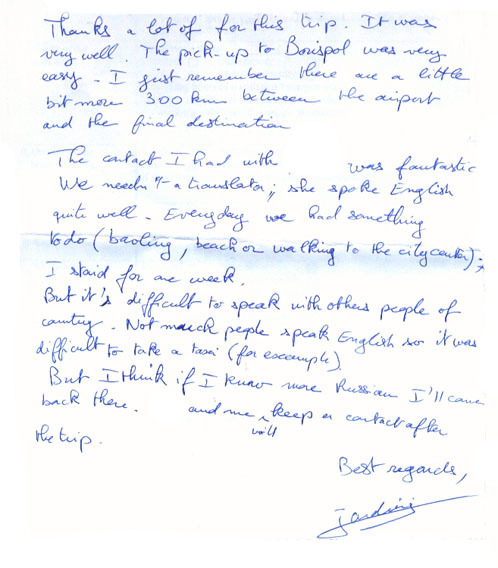 Thanks a lot of for this trip. It was
very well. The pick-up to Borispol was very
easy - I just remember there are a little
bit more 300 km between the airport
and the final destination
The contact I had with was fantastic
We needn't a translator; she spoke English
quite well - Everyday we had something
to do (bowling, beach or walking to the citycenter);
I staid for one week.
But it's difficult to speak with others people of
country. Not much people speak English so it was
difficult to take a taxi (for example).
But I think if I know more Russian I'll came
back there. and me will keep a contact after
the trip.
Best regards,